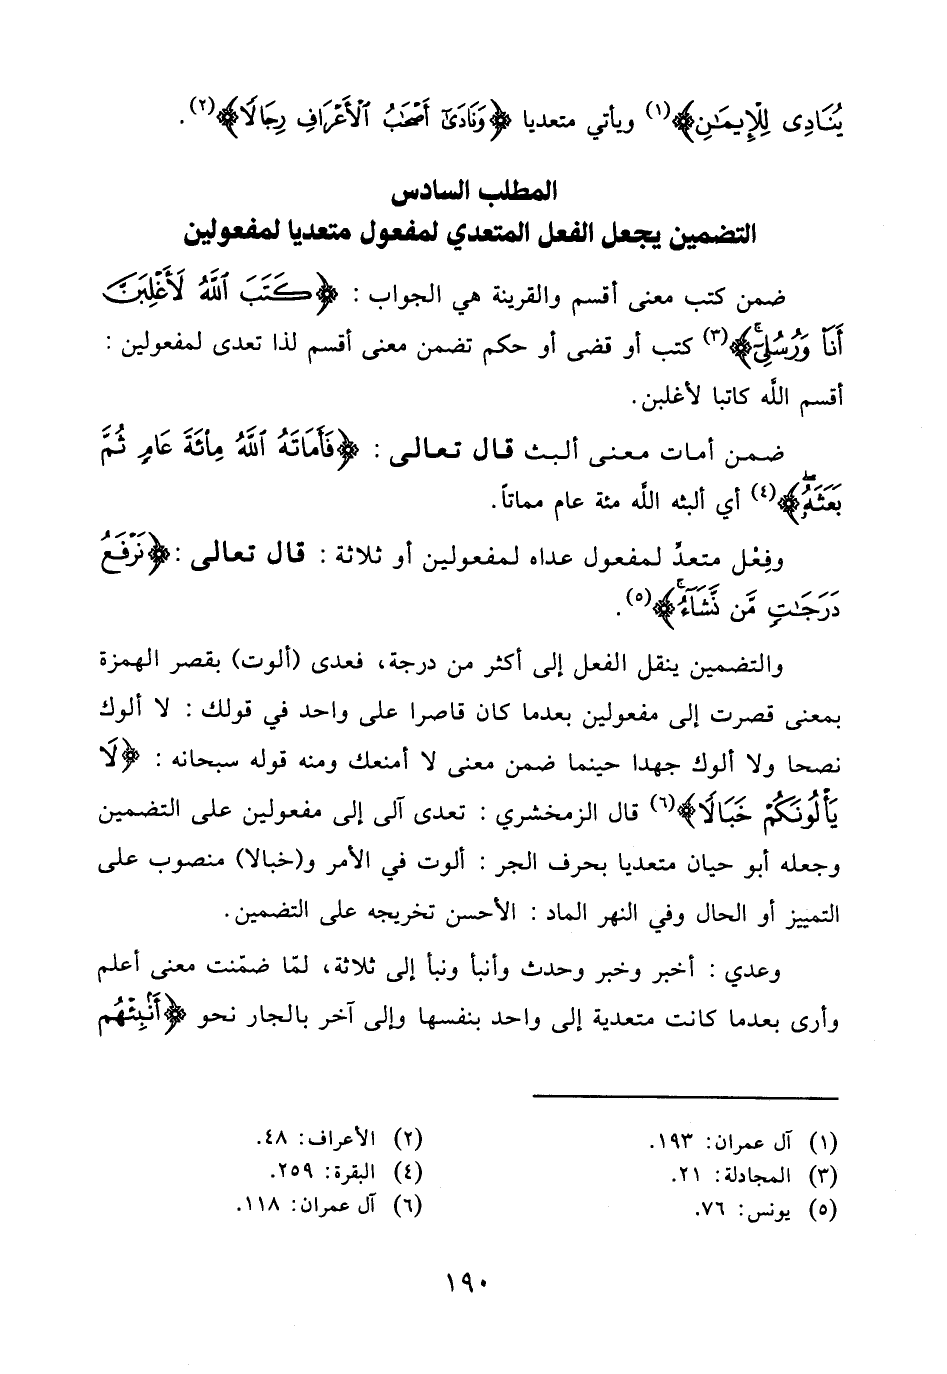 يُنَادِى لِلْإِيمَـٰنِ﴾(١) ويأتي متعديا ﴿وَنَادَىٰٓ أَصْحَـٰبُ ٱلْأَعْرَافِ رِجَالًا﴾(٢).
المطلب السادس
التضمين يجعل الفعل المتعدي لمفعول متعديا لمفعولين
ضمن كتب معنى أقسم والقرينة هي الجواب : ﴿كَتَبَ ٱللَّهُ لَأَغْلِبَنَّ
أَنَا۠ وَرُسُلِىٓۚ﴾(٣) كتب أو قضى أو حكم تضمن معنى أقسم لذا تعدى لمفعولين :
أقسم اللَّه كاتبا لأغلبن.
ضمن أمات معنى ألبث قال تعالى : ﴿فَأَمَاتَهُ ٱللَّهُ مِا۟ئَةَ عَامٍ ثُمَّ
بَعَثَهُۥۖ﴾(٤) أي ألبثه اللَّه مئة عام مماتاً.
وفِعْل متعدٍّ لمفعول عداه لمفعولين أو ثلاثة : قال تعالى : ﴿نَرْفَعُ
دَرَجَـٰتٍ مَّن نَّشَآءُۚ﴾(٥).
والتضمين ينقل الفعل إلى أكثر من درجة، فعدى (ألوت) بقصر الهمزة
بمعنى قصرت إلى مفعولين بعدما كان قاصرا على واحد في قولك : لا ألوك
نصحا ولا ألوك جهدا حينما ضمن معنى لا أمنعك ومنه قوله سبحانه : ﴿لَا
يَأْلُونَكُمْ خَبَالًا﴾(٦) قال الزمخشري : تعدى آلى إلى مفعولين على التضمين
وجعله أبو حيان متعديا بحرف الجر : ألوت في الأمر و(خبالا) منصوب على
التمييز أو الحال وفي النهر الماد : الأحسن تخريجه على التضمين.
وعدي : أخبر وخبر وحدث وأنبأ ونبأ إلى ثلاثة، لمّا ضمّنت معنى أعلم
وأرى بعدما كانت متعدية إلى واحد بنفسها وإلى آخر بالجار نحو ﴿أَنۢبِئْهُم
(١) آل عمران: ١٩٣.
(٢) الأعراف: ٤٨.
(٣) المجادلة: ٢١.
(٤) البقرة: ٢٥٩.
(٥) يونس: ٧٦.
(٦) آل عمران: ١١٨.
١٩٠